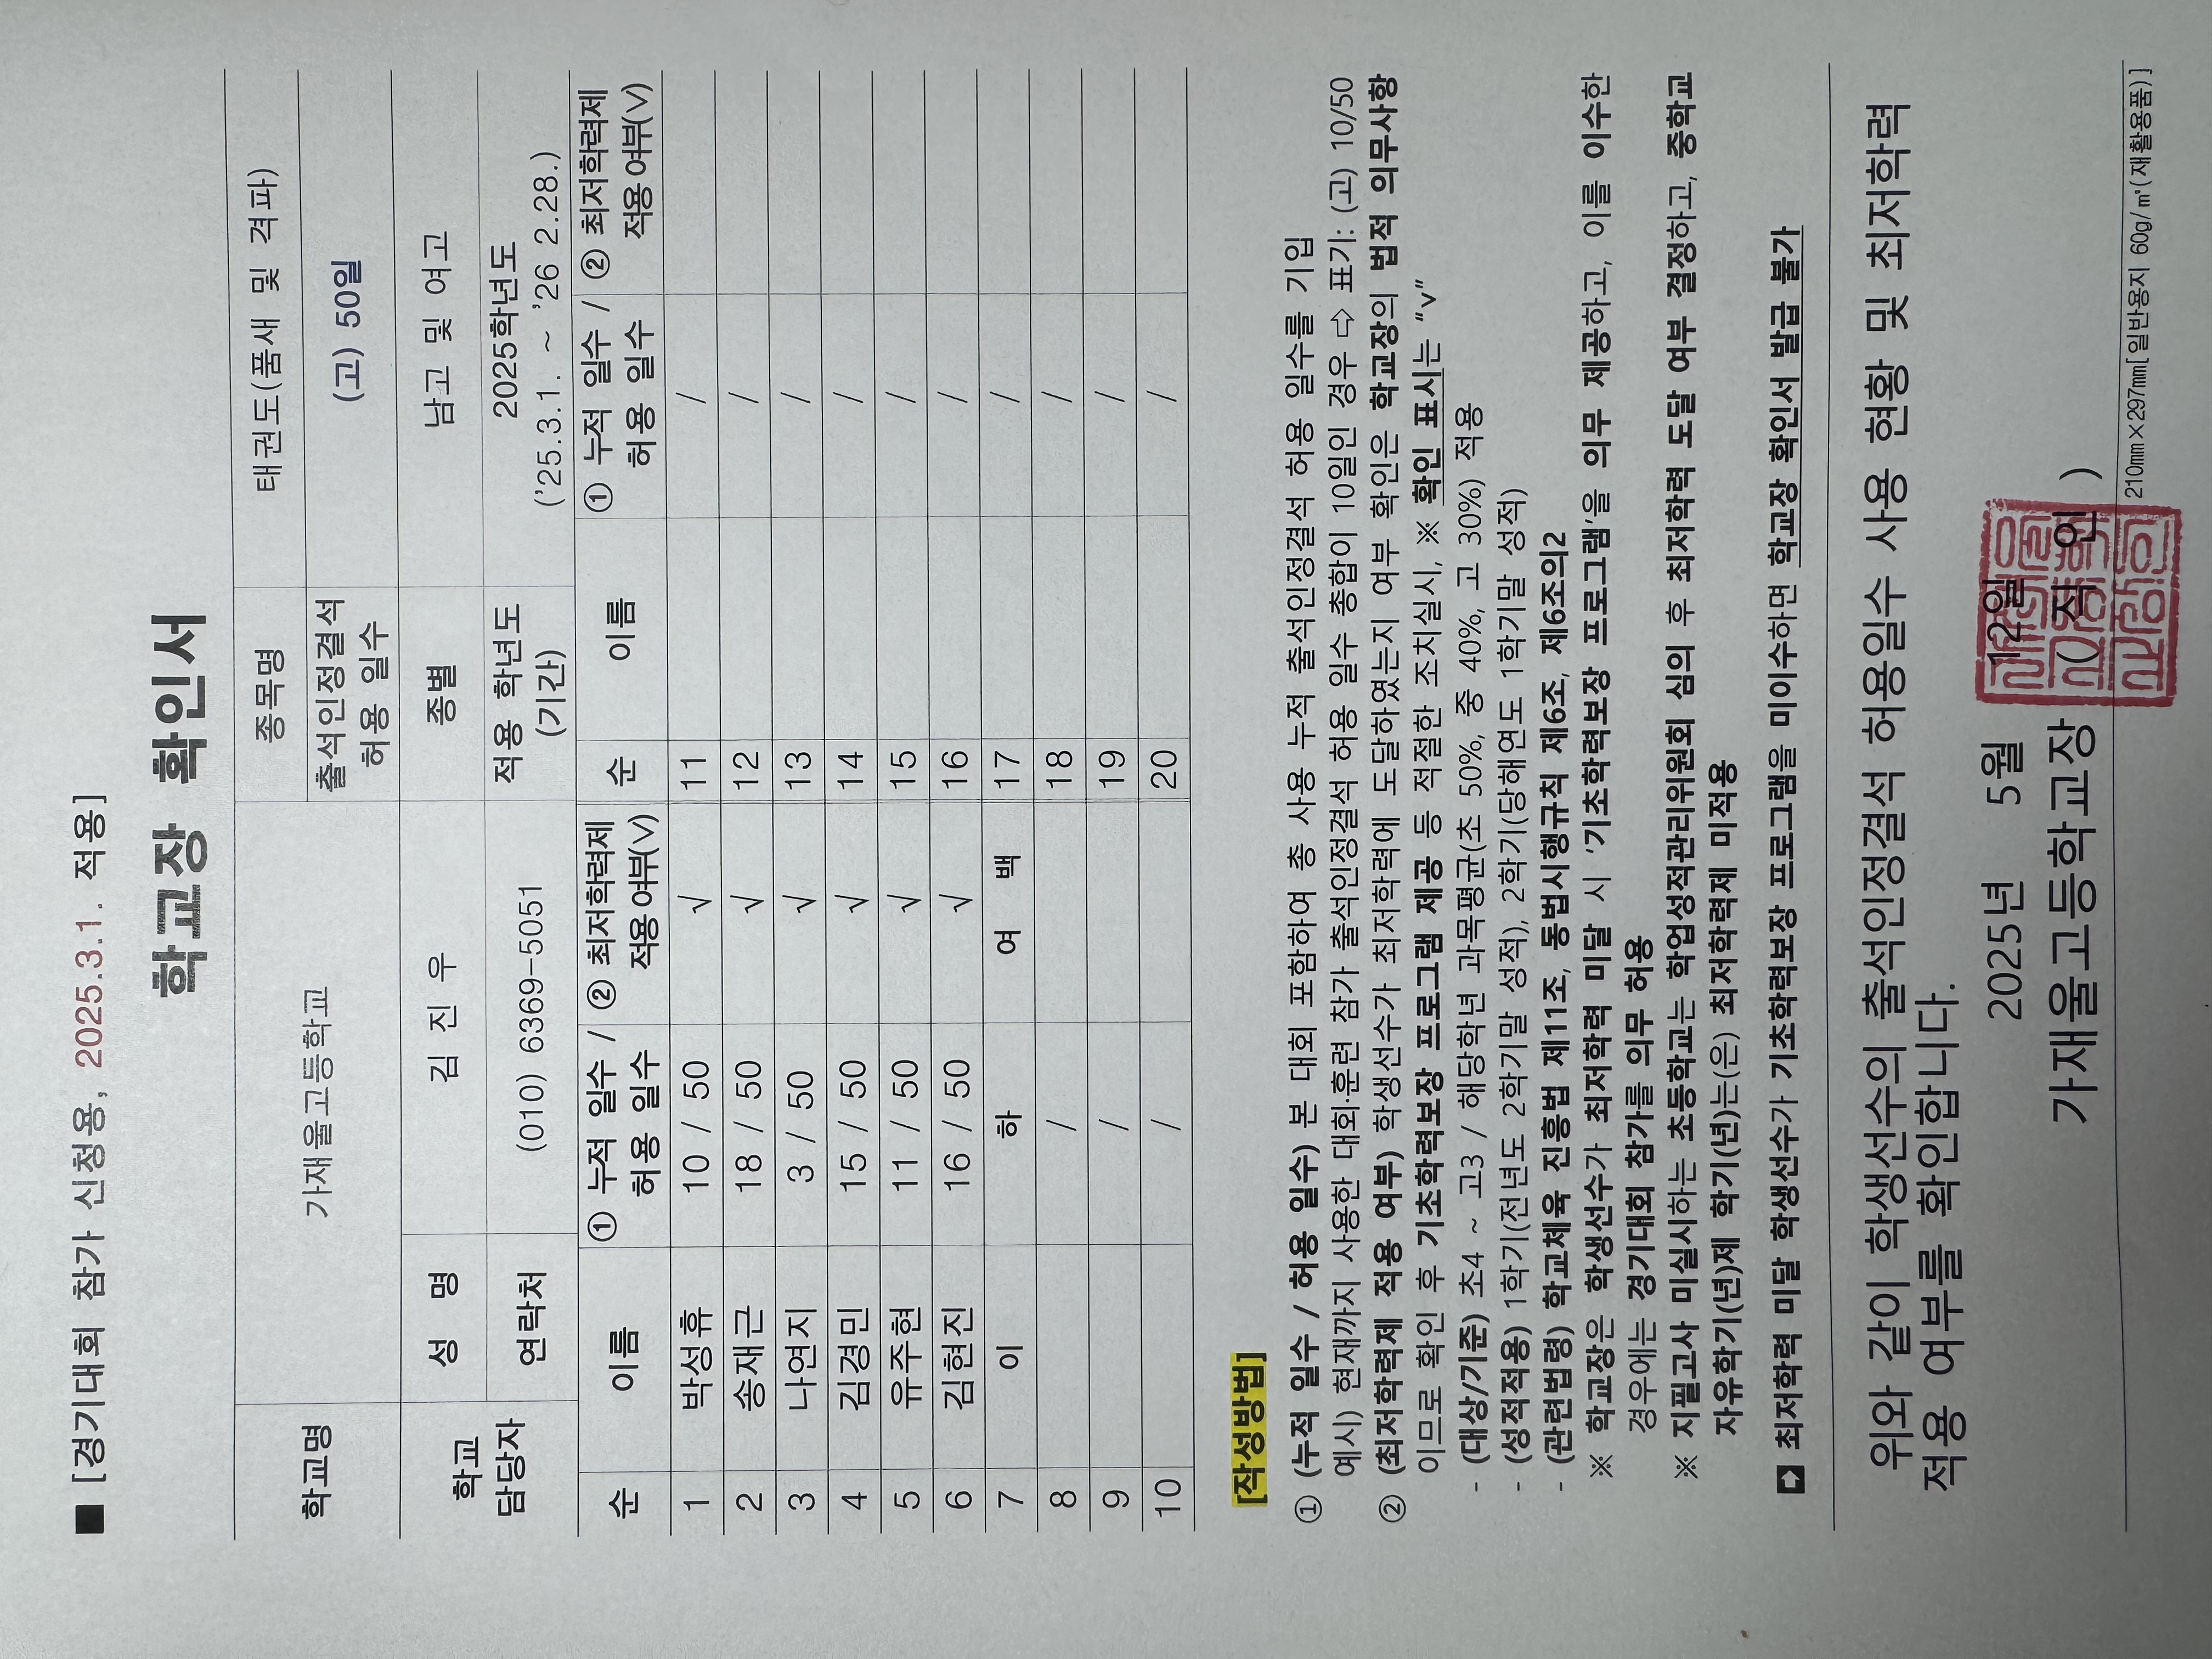 ■ [경기대회 참가 신청용, 2025.3.1. 적용]
학교장 확인서
학교명 가재울고등학교 종목명 태권도(품새 및 격파)
출석인정결석 허용 일수 (고) 50일
학교 담당자 성 명 김 진 우 종별 남고 및 여고
연락처 (010) 6369-5051 적용 학년도 (기간) 2025학년도 ('25.3.1. ~ '26 2.28.)
순 이름 ① 누적 일수 / 허용 일수 ② 최저학력제 적용여부(√) 순 이름 ① 누적 일수 / 허용 일수 ② 최저학력제 적용여부(√)
1 박성휴 10 / 50 √ 11 /
2 송재근 18 / 50 √ 12 /
3 나연지 3 / 50 √ 13 /
4 김경민 15 / 50 √ 14 /
5 유주현 11 / 50 √ 15 /
6 김현진 16 / 50 √ 16 /
7 이 하 여 백 17 /
8 / 18 /
9 / 19 /
10 / 20 /
[작성방법]
① (누적 일수 / 허용 일수) 본 대회 포함하여 총 사용 누적 출석인정결석 허용 일수를 기입
예시) 현재까지 사용한 대회·훈련 참가 출석인정결석 허용 일수 총합이 10일인 경우 ⇨ 표기: (고) 10/50
② (최저학력제 적용 여부) 학생선수가 최저학력에 도달하였는지 여부 확인은 학교장의 법적 의무사항
이므로 확인 후 기초학력보장 프로그램 제공 등 적절한 조치실시, ※ 확인 표시는 "v"
- (대상/기준) 초4 ~ 고3 / 해당학년 과목평균(초 50%, 중 40%, 고 30%) 적용
- (성적적용) 1학기(전년도 2학기말 성적), 2학기(당해연도 1학기말 성적)
- (관련법령) 학교체육 진흥법 제11조, 동법시행규칙 제6조, 제6조의2
※ 학교장은 학생선수가 최저학력 미달 시 '기초학력보장 프로그램'을 의무 제공하고, 이를 이수한
경우에는 경기대회 참가를 의무 허용
※ 지필고사 미실시하는 초등학교는 학업성적관리위원회 심의 후 최저학력 도달 여부 결정하고, 중학교
자유학기(년)제 학기(년)는(은) 최저학력제 미적용
➡ 최저학력 미달 학생선수가 기초학력보장 프로그램을 미이수하면 학교장 확인서 발급 불가
위와 같이 학생선수의 출석인정결석 허용일수 사용 현황 및 최저학력
적용 여부를 확인합니다.
2025년 5월 12일
가재울고등학교장 (직 인)
210mm×297mm[일반용지 60g/㎡(재활용품)]